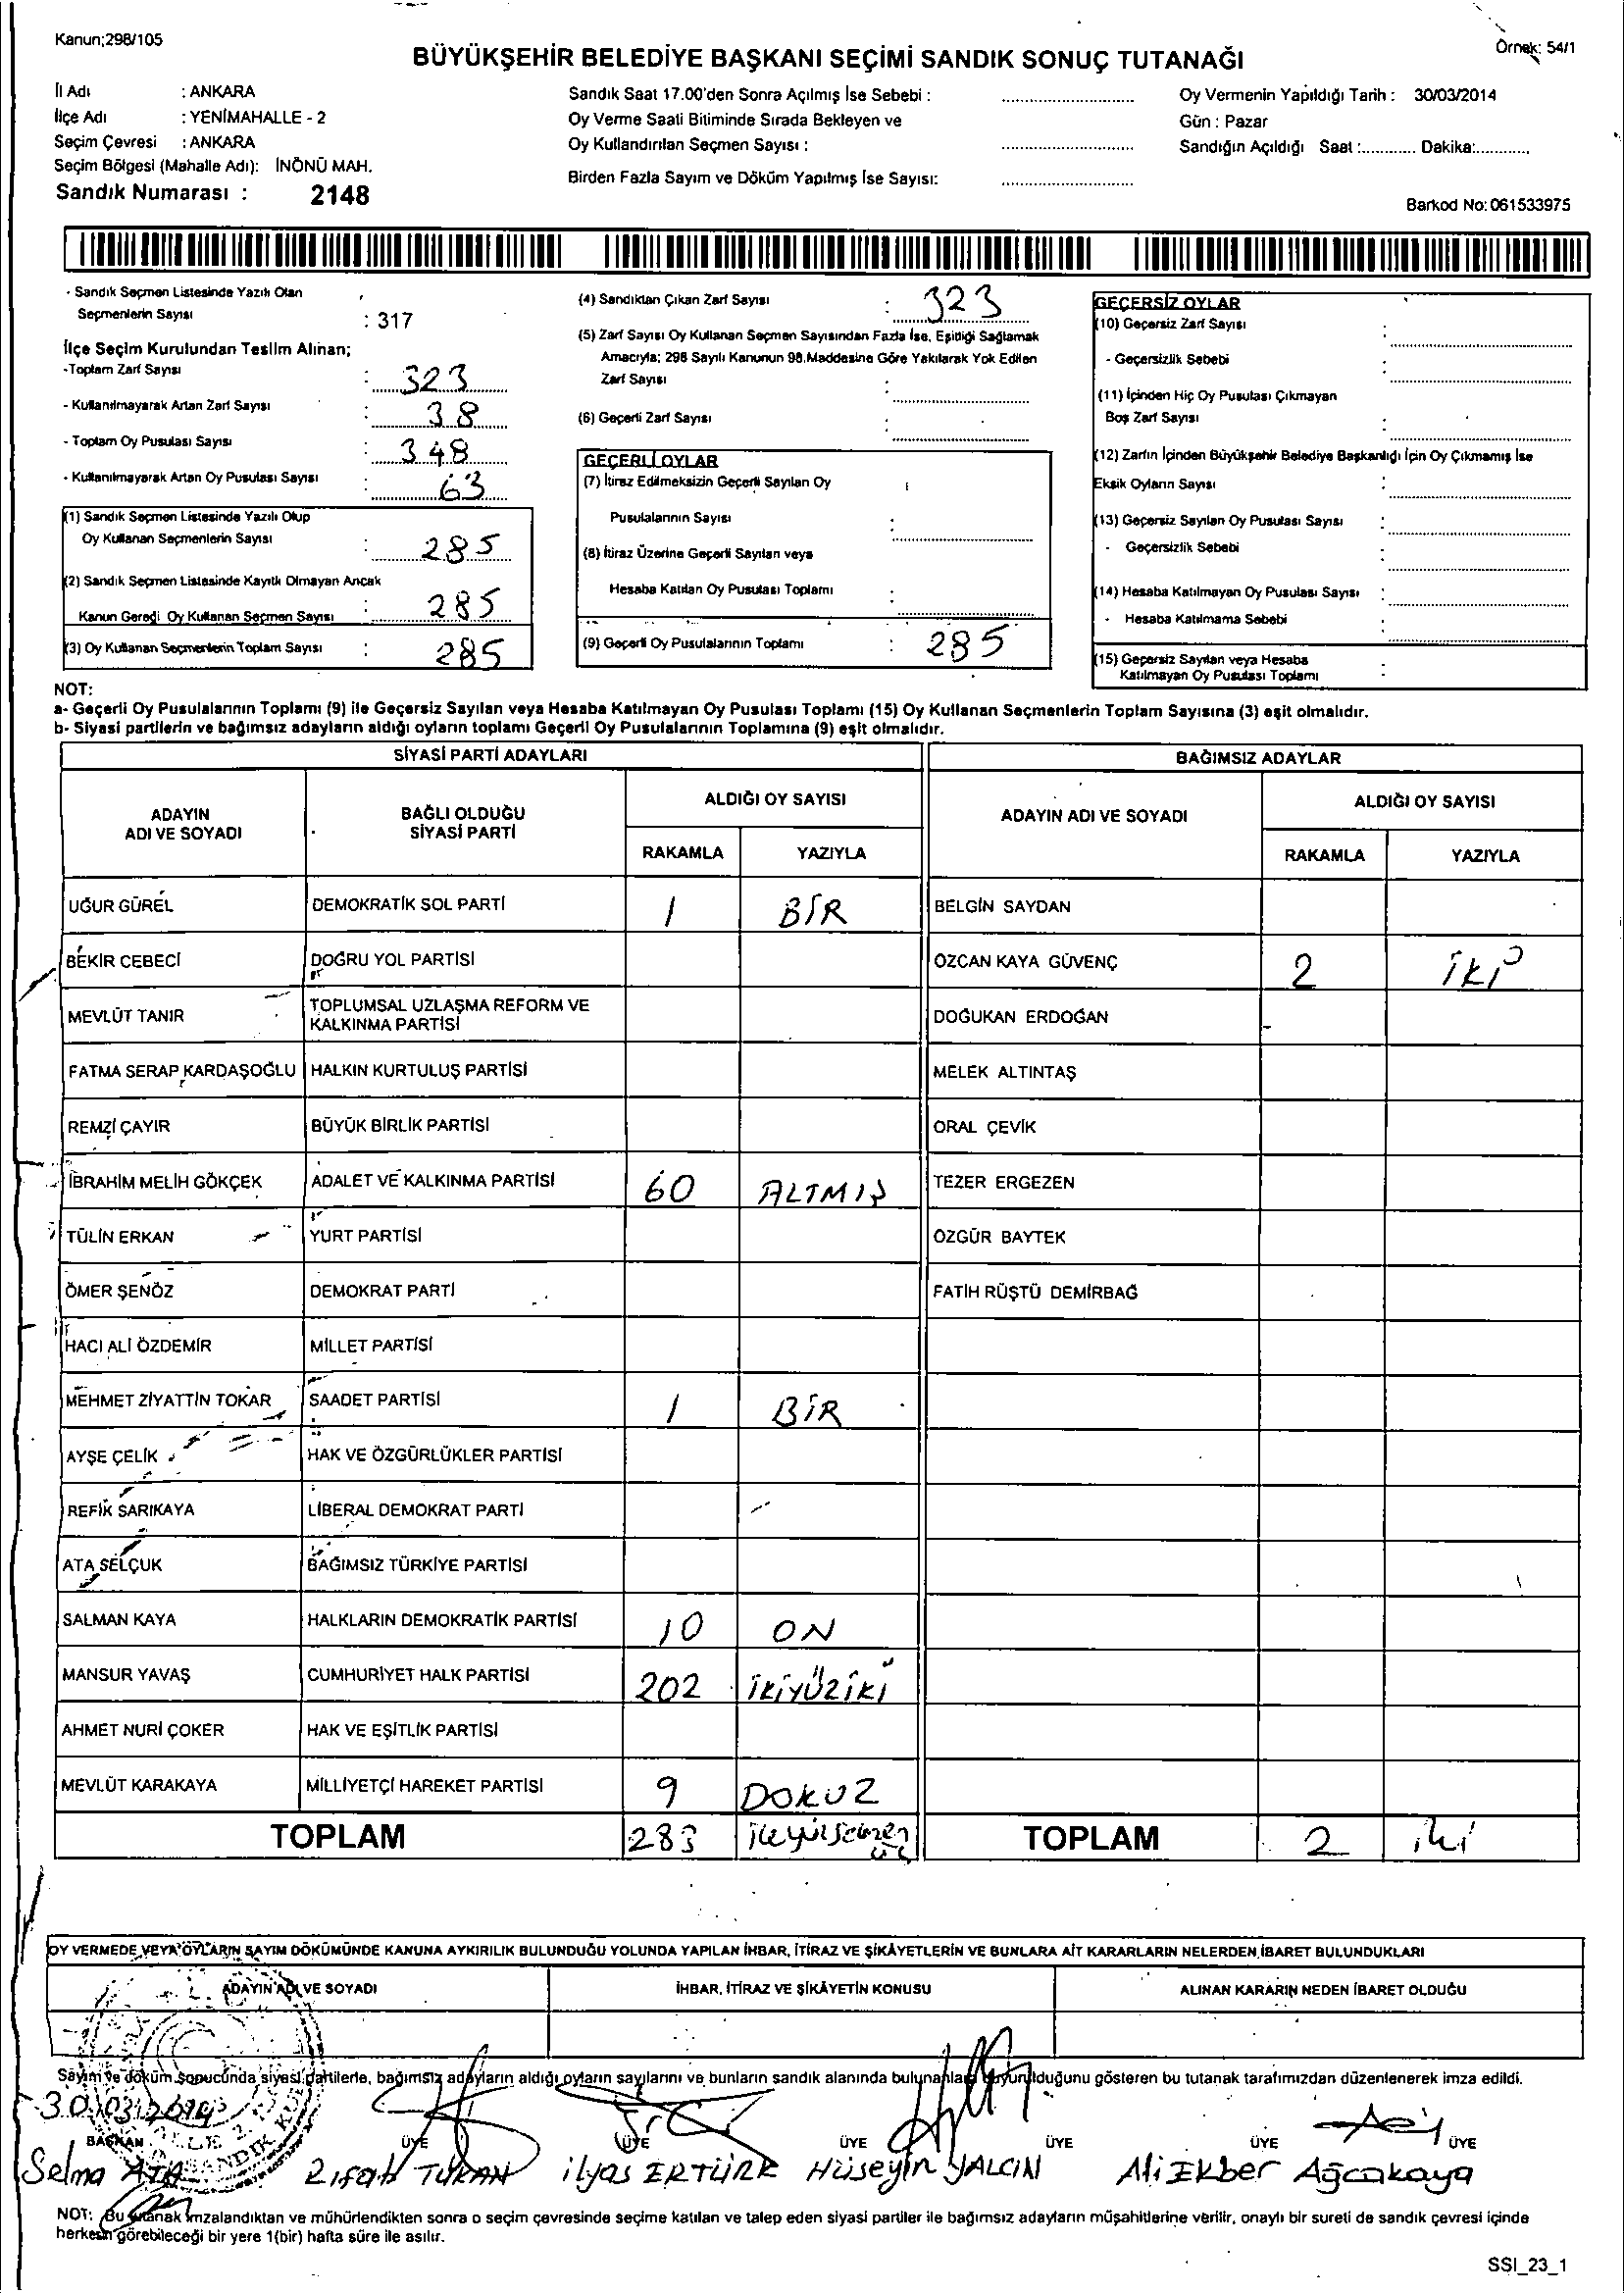 Kanun;298/105
Örnek: 54/1
BÜYÜKŞEHİR BELEDİYE BAŞKANI SEÇİMİ SANDIK SONUÇ TUTANAĞI
İl Adı : ANKARA
İlçe Adı : YENİMAHALLE - 2
Seçim Çevresi : ANKARA
Seçim Bölgesi (Mahalle Adı): İNÖNÜ MAH.
Sandık Numarası : 2148
Sandık Saat 17.00'den Sonra Açılmış İse Sebebi :
Oy Verme Saati Bitiminde Sırada Bekleyen ve
Oy Kullandırılan Seçmen Sayısı :
Birden Fazla Sayım ve Döküm Yapılmış İse Sayısı:
Oy Vermenin Yapıldığı Tarih : 30/03/2014
Gün : Pazar
Sandığın Açıldığı Saat :............ Dakika:............
Barkod No: 061533975
- Sandık Seçmen Listesinde Yazılı Olan
Seçmenlerin Sayısı : 317
İlçe Seçim Kurulundan Teslim Alınan;
-Toplam Zarf Sayısı : 323
- Kullanılmayarak Artan Zarf Sayısı : 38
- Toplam Oy Pusulası Sayısı : 348
- Kullanılmayarak Artan Oy Pusulası Sayısı : 63
(1) Sandık Seçmen Listesinde Yazılı Olup
Oy Kullanan Seçmenlerin Sayısı : 285
(2) Sandık Seçmen Listesinde Kayıtlı Olmayan Ancak
Kanun Gereği Oy Kullanan Seçmen Sayısı : 285
(3) Oy Kullanan Seçmenlerin Toplam Sayısı : 285
(4) Sandıktan Çıkan Zarf Sayısı : 323
(5) Zarf Sayısı Oy Kullanan Seçmen Sayısından Fazla İse, Eşitliği Sağlamak
Amacıyla; 298 Sayılı Kanunun 98.Maddesine Göre Yakılarak Yok Edilen
Zarf Sayısı :
(6) Geçerli Zarf Sayısı :
GEÇERLİ OYLAR
(7) İtiraz Edilmeksizin Geçerli Sayılan Oy
Pusulalarının Sayısı :
(8) İtiraz Üzerine Geçerli Sayılan veya
Hesaba Katılan Oy Pusulası Toplamı :
(9) Geçerli Oy Pusulalarının Toplamı : 285
GEÇERSİZ OYLAR
(10) Geçersiz Zarf Sayısı :
- Geçersizlik Sebebi :
(11) İçinden Hiç Oy Pusulası Çıkmayan
Boş Zarf Sayısı :
(12) Zarfın İçinden Büyükşehir Belediye Başkanlığı İçin Oy Çıkmamış İse
Eksik Oyların Sayısı :
(13) Geçersiz Sayılan Oy Pusulası Sayısı :
- Geçersizlik Sebebi :
(14) Hesaba Katılmayan Oy Pusulası Sayısı :
- Hesaba Katılmama Sebebi :
(15) Geçersiz Sayılan veya Hesaba
Katılmayan Oy Pusulası Toplamı :
NOT:
a- Geçerli Oy Pusulalarının Toplamı (9) ile Geçersiz Sayılan veya Hesaba Katılmayan Oy Pusulası Toplamı (15) Oy Kullanan Seçmenlerin Toplam Sayısına (3) eşit olmalıdır.
b- Siyasi partilerin ve bağımsız adayların aldığı oyların toplamı Geçerli Oy Pusulalarının Toplamına (9) eşit olmalıdır.
SİYASİ PARTİ ADAYLARI BAĞIMSIZ ADAYLAR
ADAYIN ADI VE SOYADI BAĞLI OLDUĞU SİYASİ PARTİ ALDIĞI OY SAYISI ADAYIN ADI VE SOYADI ALDIĞI OY SAYISI
RAKAMLA YAZIYLA RAKAMLA YAZIYLA
UĞUR GÜREL DEMOKRATİK SOL PARTİ 1 BİR BELGİN SAYDAN
BEKİR CEBECİ DOĞRU YOL PARTİSİ ÖZCAN KAYA GÜVENÇ 2 İKİ
MEVLÜT TANIR TOPLUMSAL UZLAŞMA REFORM VE KALKINMA PARTİSİ DOĞUKAN ERDOĞAN
FATMA SERAP KARDAŞOĞLU HALKIN KURTULUŞ PARTİSİ MELEK ALTINTAŞ
REMZİ ÇAYIR BÜYÜK BİRLİK PARTİSİ ORAL ÇEVİK
İBRAHİM MELİH GÖKÇEK ADALET VE KALKINMA PARTİSİ 60 ALTMIŞ TEZER ERGEZEN
TÜLİN ERKAN YURT PARTİSİ ÖZGÜR BAYTEK
ÖMER ŞENÖZ DEMOKRAT PARTİ FATİH RÜŞTÜ DEMİRBAĞ
HACI ALİ ÖZDEMİR MİLLET PARTİSİ
MEHMET ZİYATTİN TOKAR SAADET PARTİSİ 1 BİR
AYŞE ÇELİK HAK VE ÖZGÜRLÜKLER PARTİSİ
REFİK SARIKAYA LİBERAL DEMOKRAT PARTİ
ATA SELÇUK BAĞIMSIZ TÜRKİYE PARTİSİ
SALMAN KAYA HALKLARIN DEMOKRATİK PARTİSİ 10 ON
MANSUR YAVAŞ CUMHURİYET HALK PARTİSİ 202 İKİYÜZİKİ
AHMET NURİ ÇOKER HAK VE EŞİTLİK PARTİSİ
MEVLÜT KARAKAYA MİLLİYETÇİ HAREKET PARTİSİ 9 DOKUZ
TOPLAM 283 TOPLAM 2 iki
OY VERMEDE VEYA OYLARIN SAYIM DÖKÜMÜNDE KANUNA AYKIRILIK BULUNDUĞU YOLUNDA YAPILAN İHBAR, İTİRAZ VE ŞİKÂYETLERİN VE BUNLARA AİT KARARLARIN NELERDEN İBARET BULUNDUKLARI
ADAYIN ADI VE SOYADI İHBAR, İTİRAZ VE ŞİKÂYETİN KONUSU ALINAN KARARIN NEDEN İBARET OLDUĞU
Sayım ve döküm sonucunda siyasi partilerle, bağımsız adayların aldığı oyların sayılarını ve bunların sandık alanında bulunanlara duyurulduğunu gösteren bu tutanak tarafımızdan düzenlenerek imza edildi.
30/03/2014
BAŞKAN ÜYE ÜYE ÜYE ÜYE ÜYE ÜYE
Selma ATA Rıfat TURAN İlyas ERTÜRK Hüseyin YALÇIN Ali Ekber Ağcakaya
NOT: Bu tutanak imzalandıktan ve mühürlendikten sonra o seçim çevresinde seçime katılan ve talep eden siyasi partiler ile bağımsız adayların müşahitlerine verilir, onaylı bir sureti de sandık çevresi içinde
herkesin görebileceği bir yere 1(bir) hafta süre ile asılır.
SSI_23_1